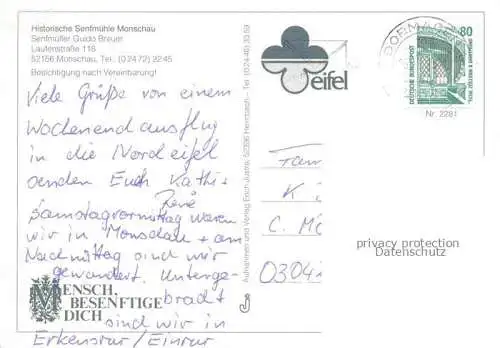 Historische Senfmühle Monschau
Senfmüller Guido Breuer
Laufenstraße 118
52156 Monschau, Tel.: (0 24 72) 22 45
Besichtigung nach Vereinbarung!
Viele Grüße von einem
Wochenendausflug
in die Nordeifel
senden Euch Kathi +
René
Samstagvormittag waren
wir in Monschau + am
Nachmittag sind wir
gewandert. Unterge-
bracht
sind wir in
Erkensrur/Einrur
MENSCH,
BESENFTIGE
DICH
Aufnahmen und Verlag Erich Justra, 52396 Heimbach - Tel. (0 24 46) 35 59
eifel
DORMAGEN
80
DEUTSCHE BUNDESPOST
Nr. 2281
Fam
K
C. Mö
0304
privacy protection
Datenschutz